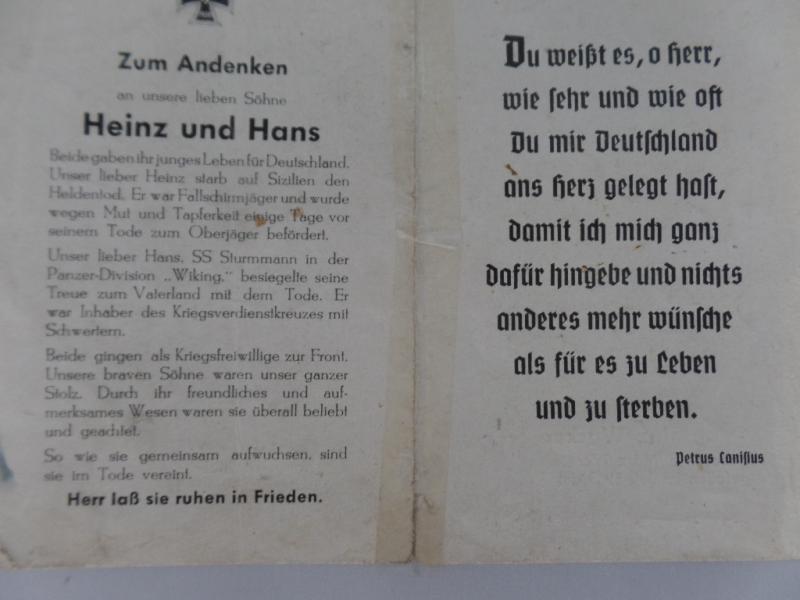 Zum Andenken
an unsere lieben Söhne
Heinz und Hans
Beide gaben ihr junges Leben für Deutschland.
Unser lieber Heinz starb auf Sizilien den
Heldentod. Er war Fallschirmjäger und wurde
wegen Mut und Tapferkeit einige Tage vor
seinem Tode zum Oberjäger befördert.
Unser lieber Hans, SS Sturmmann in der
Panzer-Division „Wiking," besiegelte seine
Treue zum Vaterland mit dem Tode. Er
war Inhaber des Kriegsverdienstkreuzes mit
Schwertern.
Beide gingen als Kriegsfreiwillige zur Front.
Unsere braven Söhne waren unser ganzer
Stolz. Durch ihr freundliches und auf-
merksames Wesen waren sie überall beliebt
und geachtet.
So wie sie gemeinsam aufwuchsen, sind
sie im Tode vereint.
Herr laß sie ruhen in Frieden.
Du weißt es, o Herr,
wie sehr und wie oft
Du mir Deutschland
ans Herz gelegt hast,
damit ich mich ganz
dafür hingebe und nichts
anderes mehr wünsche
als für es zu Leben
und zu sterben.
Petrus Canisius